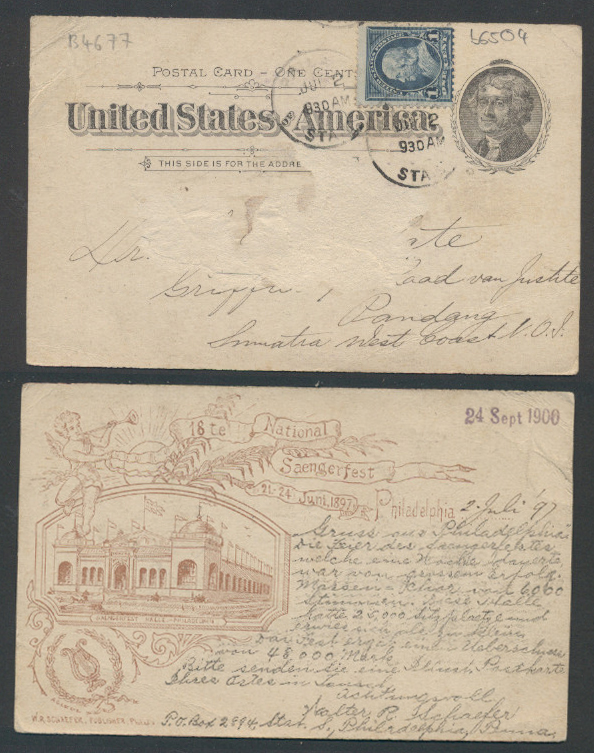 B4677
L6504
POSTAL CARD – ONE CENT
United States America
THIS SIDE IS FOR THE ADDRE
JUL 2
930 AM
STA
JUL 2
930 AM
STA
Hr.
Griffier Raad van Justitie
Pandang
Sumatra West Coast N.O.I.
24 Sept 1900
18te National
Saengerfest
21-24 Juni, 1897
Philadelphia 2. Juli '97
Gruss aus Philadelphia
Die Feier des Saengerfestes
welche eine Woche dauerte
war von grossem Erfolg.
Massen-Chor von 6000
Stimmen. Diese Halle
hatte 25,000 Sitzplaetze und
Das Fest ergab einen Ueberschuss
von 48,000 Mark
Bitte senden Sie eine Illust. Postkarte
Ihres Ostes in
Achtungsvoll
Walter R. Schaefer
SAENGERFEST HALLE-PHILADELPHIA
W.R. SCHAEFER, PUBLISHER, PHILA.
P.O. Box 2894, Stat. S., Philadelphia, Penna.